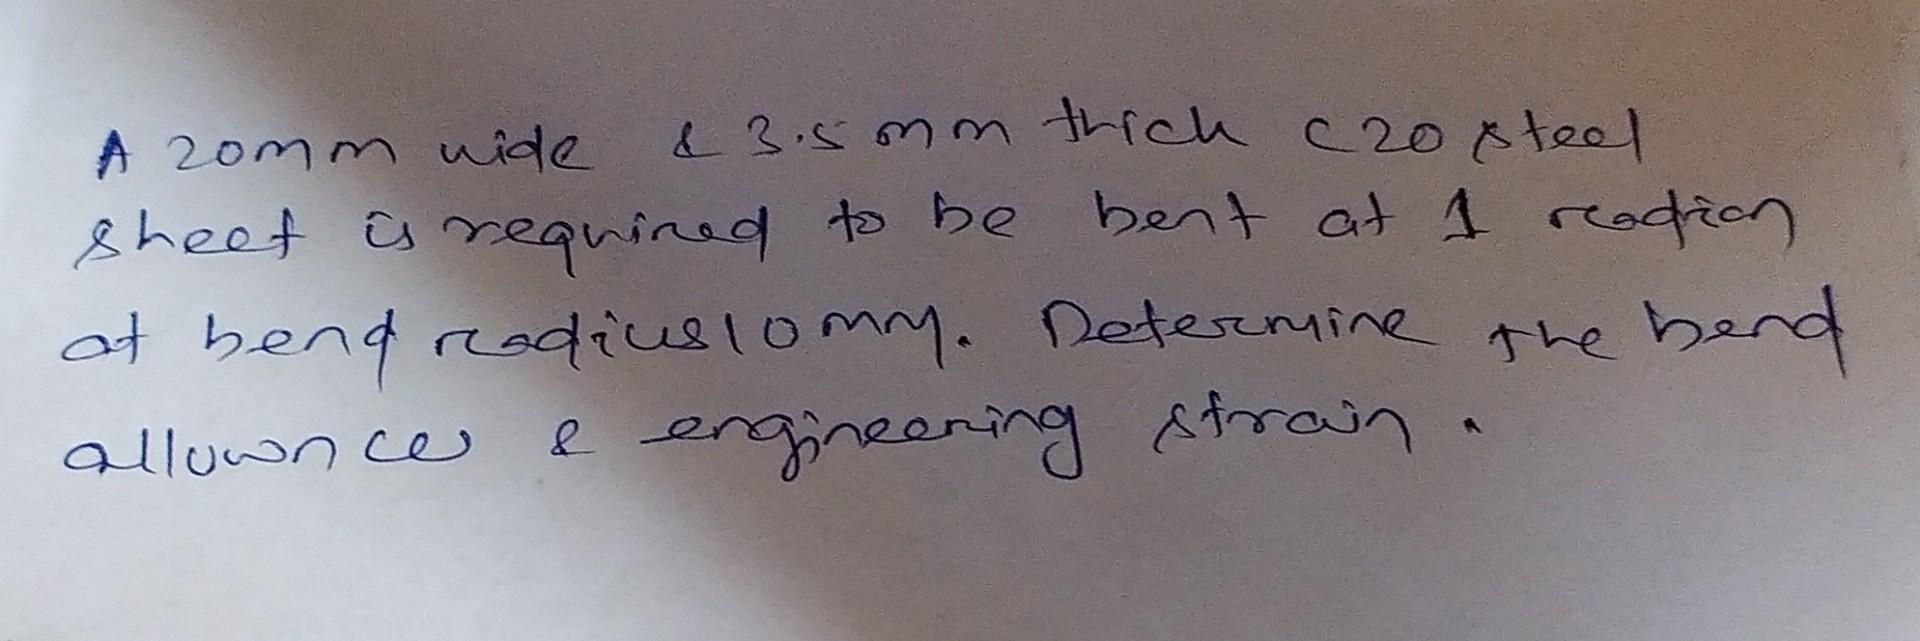 A 20mm wide & 3.5 mm thick C20 steel
sheet is required to be bent at 1 radian
at bend radius 10 mm. Determine the bend
allownces & engineering strain.